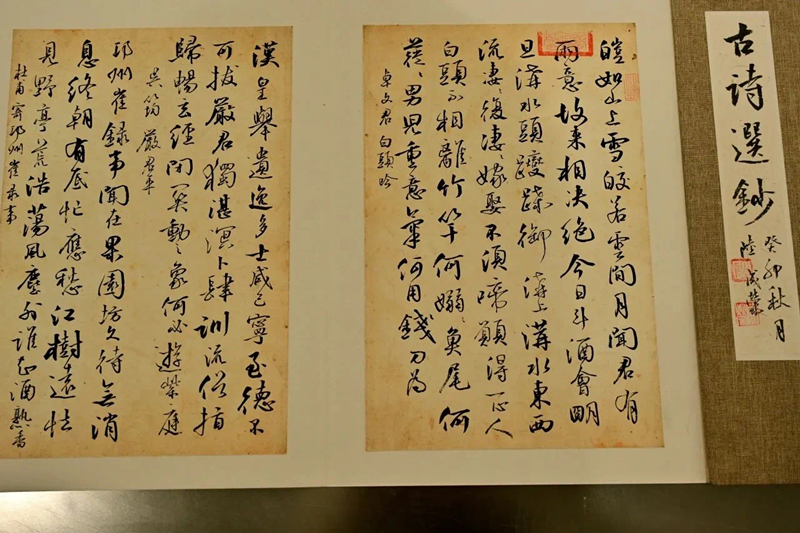 古詩選鈔
癸卯秋月
皚如山上雪皎若雲間月聞君有
兩意故来相决絶今日斗酒會明
旦溝水頭躞蹀御溝上溝水東西
流凄〻復凄〻嫁娶不須啼願得一心人
白頭不相離竹竿何嫋〻魚尾何
蓰〻男兒重意氣何用錢刀為
卓文君白頭吟
漢皇舉遺逸多士咸已寧至德不
可拔嚴君獨湛冥卜肆訓流俗指
歸暢玄經閉關動象何必遊紫庭
吳筠嚴君平
邛州崔録事聞在果園坊久待無消
息終朝有底忙應愁江樹遠怯
見野亭荒浩蕩風塵外誰知酒熟香
杜甫寄邛州崔录事